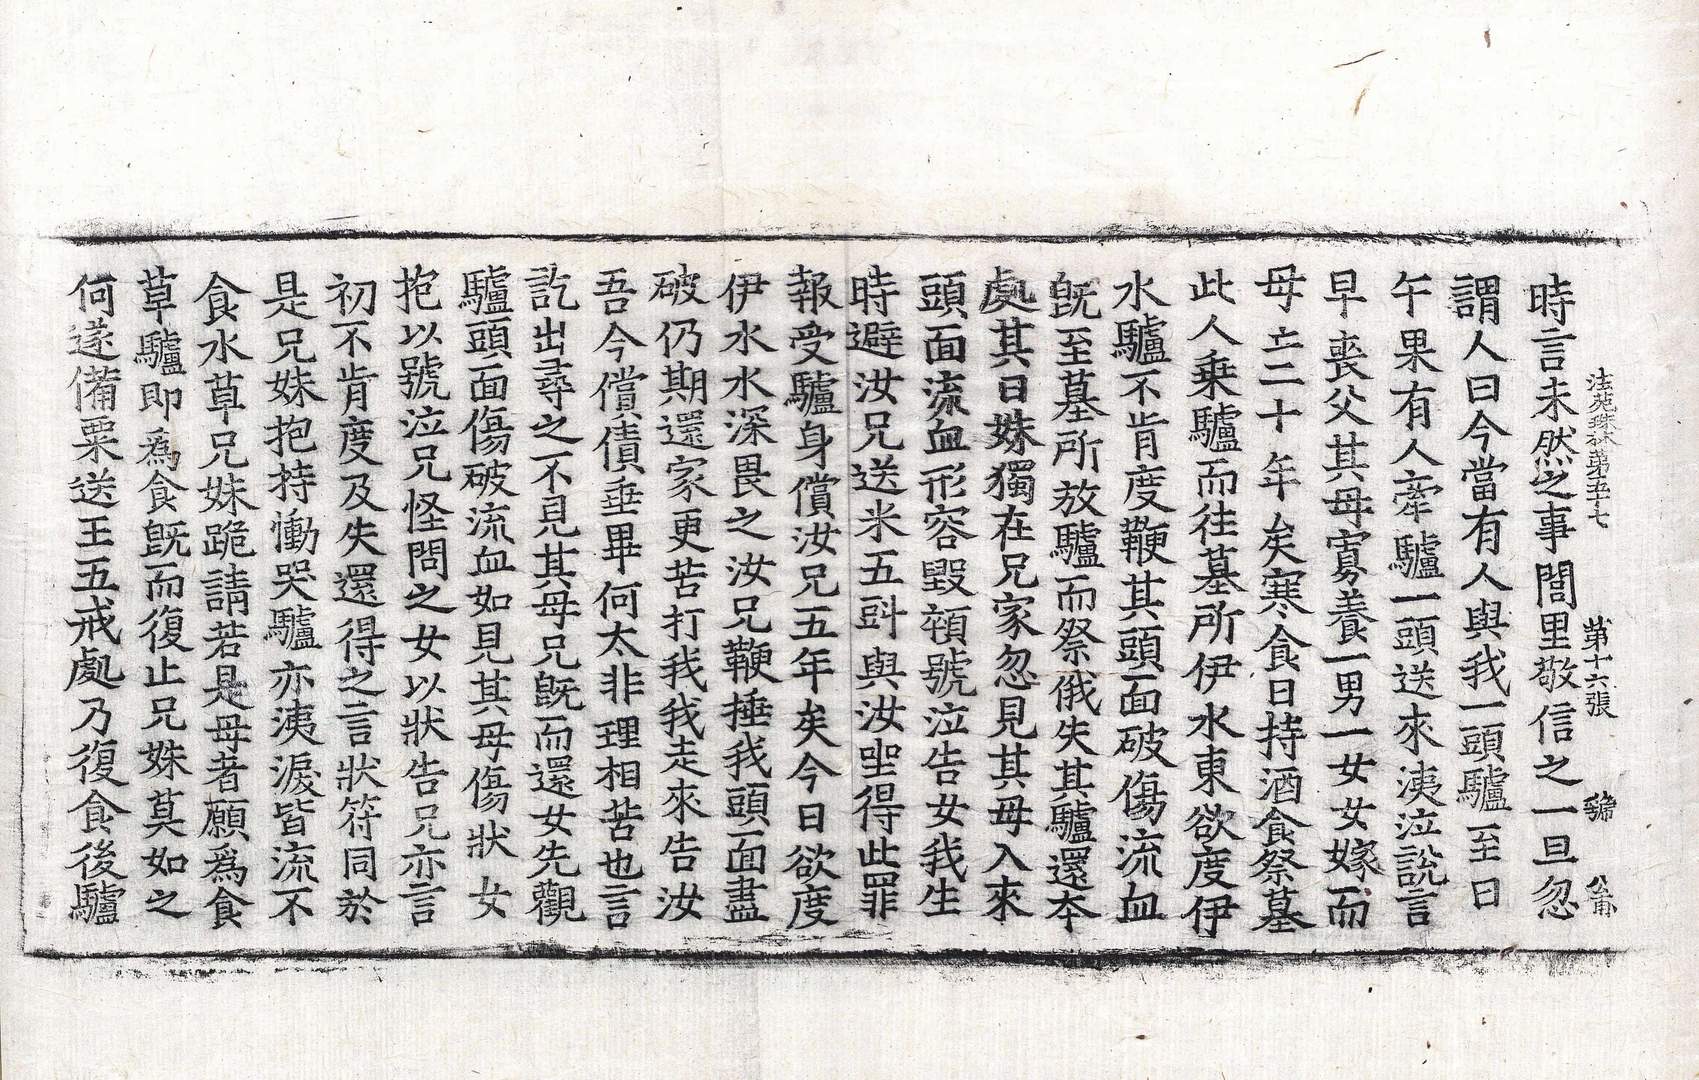 法苑珠林第五十七　第十六張　號
時言未然之事閭里敬信之一旦忽
謂人曰今當有人與我一頭驢至日
午果有人牽驢一頭送來洟泣說言
早喪父其母寡養一男一女女嫁而
母亡二十年矣寒食日持酒食祭墓
此人乗驢而往墓所伊水東欲度伊
水驢不肯度鞭其頭面破傷流血
旣至墓所放驢而祭俄失其驢還夲
處其日妹獨在兄家忽見其母入來
頭面流血形容毀顇號泣告女我生
時避汝兄送米五㪷與汝坐得此罪
報受驢身償汝兄五年矣今日欲度
伊水水深畏之汝兄鞭捶我頭面盡
破仍期還家更苦打我我走來告汝
吾今償債垂畢何太非理相苦也言
訖出尋之不見其母兄旣而還女先觀
驢頭面傷破流血如見其母傷狀女
抱以號泣兄怪問之女以狀告兄亦言
初不肯度及失還得之言狀符同於
是兄妹抱持慟哭驢亦洟淚皆流不
食水草兄妹跪請若是母者願爲食
草驢即爲食旣而復止兄妹莫如之
何遂備粟送王五戒處乃復食後驢